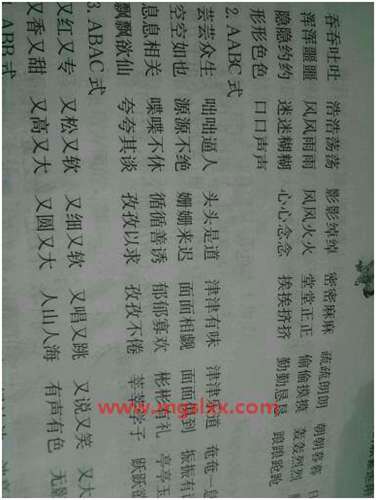 吞吞吐吐 浩浩荡荡 影影绰绰 密密麻麻 疏疏朗朗 朝朝暮暮
浑浑噩噩 风风雨雨 风风火火 堂堂正正 偷偷摸摸 轰轰烈烈
隐隐约约 迷迷糊糊 心心念念 挨挨挤挤 勤勤恳恳
形形色色 口口声声
2. AABC 式
芸芸众生 咄咄逼人 头头是道 津津有味 津津乐道 奄奄一
空空如也 源源不绝 姗姗来迟 面面相觑 面面俱到 振振有
息息相关 喋喋不休 循循善诱 郁郁寡欢 彬彬有礼 亭亭玉
飘飘欲仙 夸夸其谈 孜孜以求 孜孜不倦 莘莘学子 跃跃
3. ABAC 式
又红又专 又松又软 又细又软 又唱又跳 又说又笑 又大
又香又甜 又高又大 又圆又大 人山人海 有声有色 无
ABB 式
www.mgslxx.com